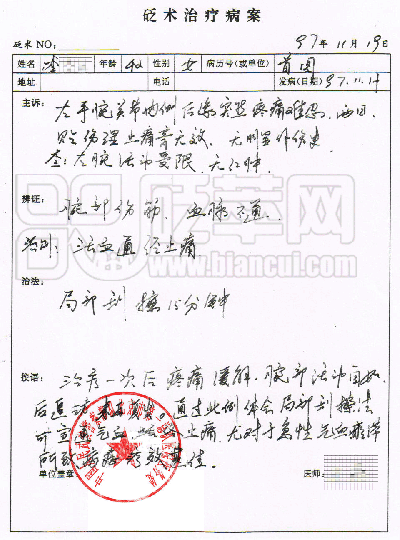 砭术治疗病案
砭术NO: 97年11月19日
姓名 李 年龄 40 性别 女 病历号(或单位) 首图
地址 电话 发病(日期) 97.11.17
主诉:
左手腕关节内侧后缘突然疼痛难忍,两日
贴伤湿止痛膏无效,无明显外伤史
查:左腕活动受限,无红肿
辨证:
腕部伤筋,血脉不通。
治则:活血通经止痛
治法:
局部刮擦15分钟
按语:
治疗一次后疼痛缓解,腕部活动自如
后追访未再复发。通过此例体会局部刮擦法
可宣通气血,止痛,尤对于急性气血瘀滞
所致病痛疗效更佳。
单位盖章: 医师:
砭萃网
www.biancui.com